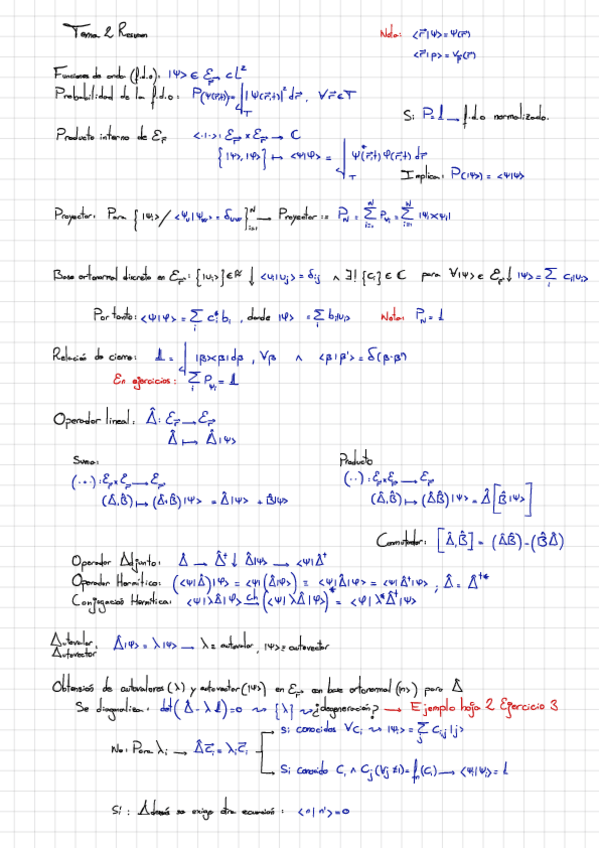 Tema 2 Resumen
Nota: ⟨r⃗|ψ⟩ = ψ(r⃗)
⟨r⃗|p⟩ = V_p(r⃗)
Funciones de onda (f.d.o). |ψ⟩ ∈ Ɛ_r⃗ ⊂ L²
Probabilidad de la f.d.o: P(ψ(r⃗,t)) = ∫_T |ψ(r⃗,t)|² dr⃗, ∀r⃗ ∈ T
Si P=1 → f.d.o normalizada.
Producto interno de Ɛ_r⃗ ⟨·|·⟩: Ɛ_r⃗ × Ɛ_r⃗ → C
{|ψ⟩, |φ⟩} ↦ ⟨ψ|φ⟩ = ∫_T ψ*(r⃗,t) φ(r⃗,t) dr⃗
Implica: P(|ψ⟩) = ⟨ψ|ψ⟩
Proyector. Para {|ψ_i⟩ / ⟨ψ_u|ψ_w⟩ = δ_uw}^N_{i=1} → Proyector := P_N = Σ^N_{i=1} P_ψi = Σ^N_{i=1} |ψ_i⟩⟨ψ_i|
Base ortonormal discreta en Ɛ_r⃗: {|u_i⟩} ∈ ↓ ⟨u_i|u_j⟩ = δ_ij ∧ ∃! {c_i} ∈ C para ∀|ψ⟩ ∈ Ɛ_r⃗ ↓ |ψ⟩ = Σ_i c_i|u_i⟩
Por tanto: ⟨ψ|φ⟩ = Σ_i c_i* b_i, donde |φ⟩ = Σ_i b_i|u_i⟩ Nota: P_N = 1
Relación de cierre: 1 = ∫ |β⟩⟨β| dβ, ∀β ∧ ⟨β|β'⟩ = δ(β-β')
En ejercicios: Σ_i P_ψi = 1
Operador lineal: Â: Ɛ_r⃗ → Ɛ_r⃗
Â ↦ Â|ψ⟩
Suma:
(·+·): Ɛ_r⃗ × Ɛ_r⃗ → Ɛ_r⃗
(Â,B̂) ↦ (Â+B̂)|ψ⟩ = Â|ψ⟩ + B̂|ψ⟩
Producto
(·.·): Ɛ_r⃗ × Ɛ_r⃗ → Ɛ_r⃗
(Â,B̂) ↦ (ÂB̂)|ψ⟩ = Â[B̂|ψ⟩]
Conmutador: [Â,B̂] = (ÂB̂)-(B̂Â)
Operador Adjunto: Â → Â† ↓ Â|ψ⟩ → ⟨ψ|Â†
Operador Hermítico: (⟨ψ|Â)|φ⟩ = ⟨ψ|(Â|φ⟩) = ⟨ψ|Â|φ⟩ = ⟨ψ|Â†|φ⟩; Â = Â†*
Conjugación Hermítica: ⟨ψ|λÂ|φ⟩ ch→ (⟨ψ|λÂ|φ⟩)* = ⟨φ|λ*Â†|ψ⟩
Autovalor
Autovector: Â|ψ⟩ = λ|ψ⟩ → λ = autovalor, |ψ⟩ = autovector
Obtención de autovalores (λ) y autovector (|ψ⟩) en Ɛ_r⃗ con base ortonormal (|n⟩) para Â
Se diagonaliza: det(Â - λ1) = 0 ⇝ {λ} ⇝ ¿degeneración? → Ejemplo hoja 2 Ejercicio 3
No: Para λ_i → Âc⃗_i = λ_i c⃗_i
Si conocidos ∀C_i ⇝ |ψ_i⟩ = Σ_j C_ij |j⟩
Si conocido C_i ∧ C_j (∀j≠i) = f_n(C_i) → ⟨ψ_i|ψ_i⟩ = 1
Sí: Además se exige otra ecuación: ⟨n|n'⟩ = 0